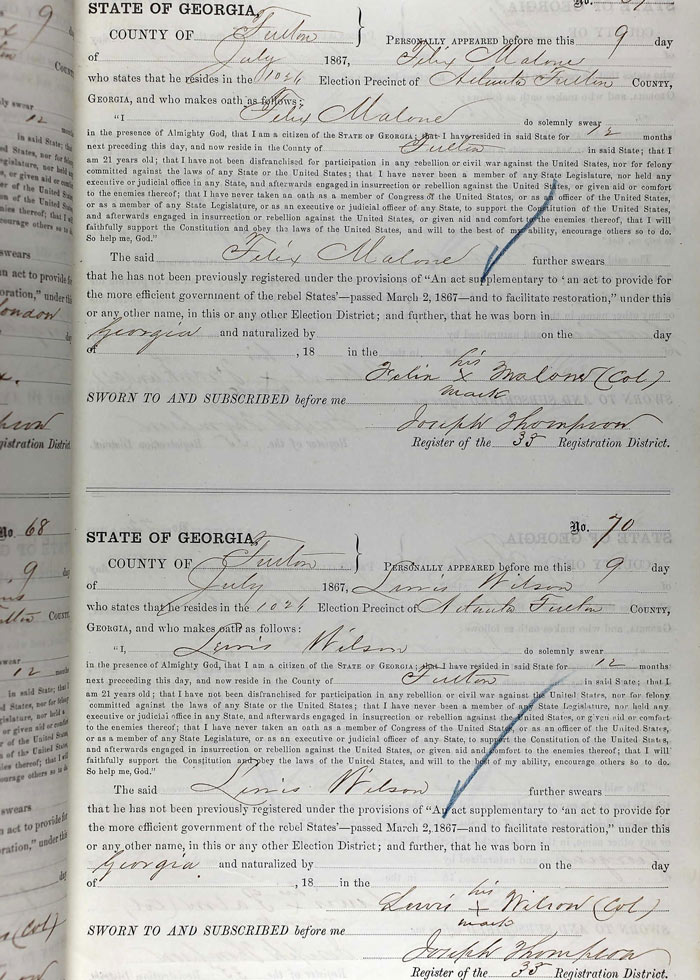 STATE OF GEORGIA,
COUNTY OF Fulton } PERSONALLY APPEARED before me this 9 day
of July 1867, Felix Malone
who states that he resides in the 1026 Election Precinct of Atlanta Fulton COUNTY,
GEORGIA, and who makes oath as follows:
"I Felix Malone do solemnly swear
in the presence of Almighty God, that I am a citizen of the STATE OF GEORGIA; that I have resided in said State for 12 months
next preceding this day, and now reside in the County of Fulton in said State; that I
am 21 years old; that I have not been disfranchised for participation in any rebellion or civil war against the United States, nor for felony
committed against the laws of any State or the United States; that I have never been a member of any State Legislature, nor held any
executive or judicial office in any State, and afterwards engaged in insurrection or rebellion against the United States, or given aid or comfort
to the enemies thereof; that I have never taken an oath as a member of Congress of the United States, or as an officer of the United States,
or as a member of any State Legislature, or as an executive or judicial officer of any State, to support the Constitution of the United States,
and afterwards engaged in insurrection or rebellion against the United States, or given aid or comfort to the enemies thereof, that I will
faithfully support the Constitution and obey the laws of the United States, and will to the best of my ability, encourage others so to do.
So help me, God."
The said Felix Malone further swears
that he has not been previously registered under the provisions of "An act supplementary to 'an act to provide for
the more efficient government of the rebel States'—passed March 2, 1867—and to facilitate restoration," under this
or any other name, in this or any other Election District; and further, that he was born in
Georgia and naturalized by on the day
of , 18 in the
his
Felix X Malone (Col)
mark
SWORN TO AND SUBSCRIBED before me
Joseph Thompson
Register of the 35 Registration District.
No. 70
STATE OF GEORGIA,
COUNTY OF Fulton } PERSONALLY APPEARED before me this 9 day
of July 1867, Lewis Wilson
who states that he resides in the 1026 Election Precinct of Atlanta Fulton COUNTY,
GEORGIA, and who makes oath as follows:
"I, Lewis Wilson do solemnly swear
in the presence of Almighty God, that I am a citizen of the STATE OF GEORGIA; that I have resided in said State for 12 months
next preceding this day, and now reside in the County of Fulton in said State; that I
am 21 years old; that I have not been disfranchised for participation in any rebellion or civil war against the United States, nor for felony
committed against the laws of any State or the United States; that I have never been a member of any State Legislature, nor held any
executive or judicial office in any State, and afterwards engaged in insurrection or rebellion against the United States, or given aid or comfort
to the enemies thereof; that I have never taken an oath as a member of Congress of the United States, or as an officer of the United States,
or as a member of any State Legislature, or as an executive or judicial officer of any State, to support the Constitution of the United States,
and afterwards engaged in insurrection or rebellion against the United States, or given aid or comfort to the enemies thereof; that I will
faithfully support the Constitution and obey the laws of the United States, and will to the best of my ability, encourage others so to do.
So help me, God."
The said Lewis Wilson further swears
that he has not been previously registered under the provisions of "An act supplementary to 'an act to provide for
the more efficient government of the rebel States'—passed March 2, 1867—and to facilitate restoration," under this
or any other name, in this or any other Election District; and further, that he was born in
Georgia and naturalized by on the day
of , 18 in the
his
Lewis X Wilson (Col)
mark
SWORN TO AND SUBSCRIBED before me
Joseph Thompson
Register of the 35 Registration District.
No. 68